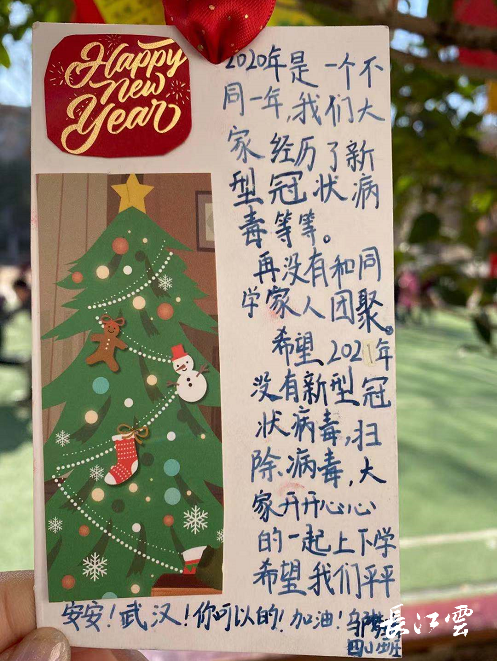 Happy
New
Year
2020年是一个不
同一年,我们大
家经历了新
型冠状病
毒等等。
再没有和同
学家人团聚。
希望2021年
没有新型冠
状病毒,扫
除病毒,大
家开开心心
的一起上下学
希望我们平平
安安!武汉!你可以的!加油!
四(1)班
長江雲